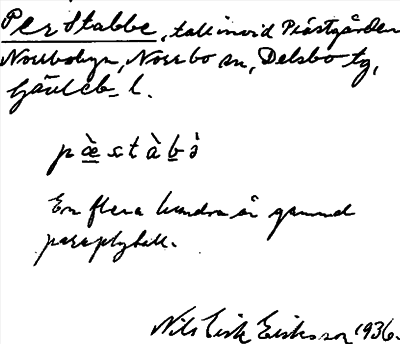 Per Stabbe, tall invid Prästgården
Norrbobyn, Norrbo sn, Delsbo tg,
Gävleb. l.
pæ̀stàbə̀
En flera hundra år gammal
paraplytall.
Nils Eirik Eriksson 1936.